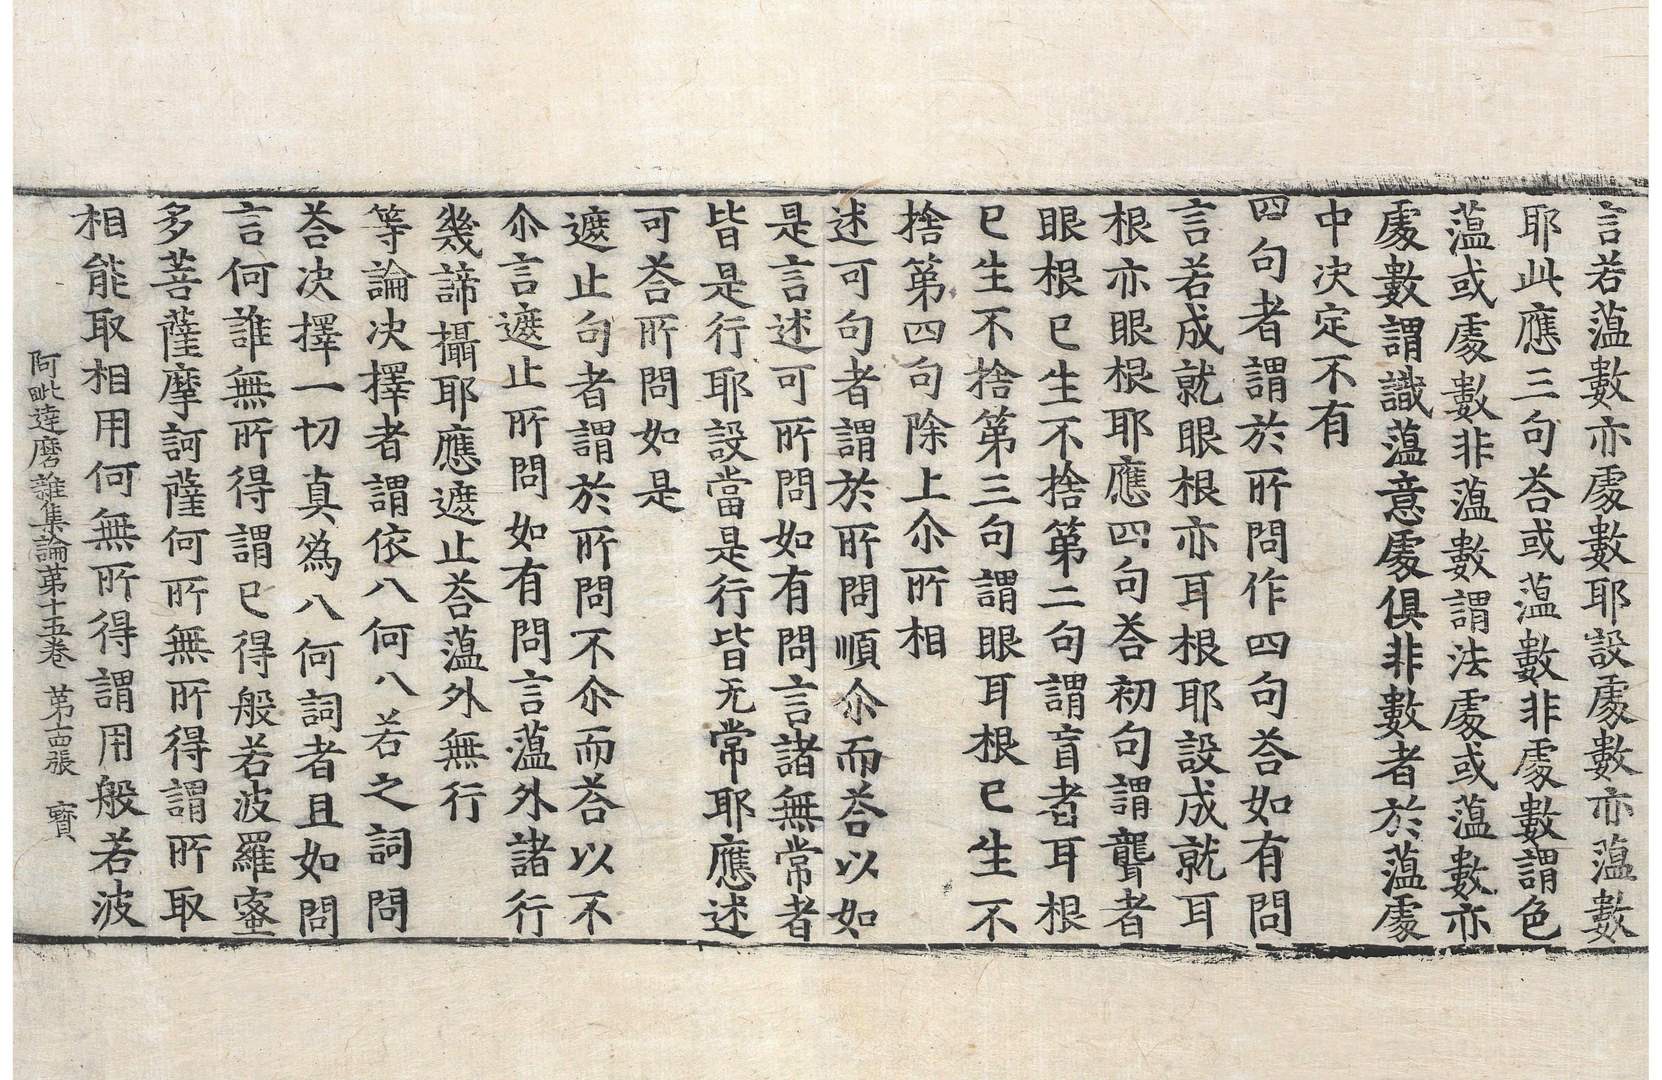 言若蕰數亦處數耶設處數亦蕰數
耶此應三句荅或蕰數非處數謂色
蕰或處數非蕰數謂法處或蕰數亦
處數謂識蕰意處俱非數者於蕰處
中决定不有
四句者謂於所問作四句荅如有問
言若成就眼根亦耳根耶設成就耳
根亦眼根耶應四句荅初句謂聾者
眼根已生不捨第二句謂盲者耳根
已生不捨第三句謂眼耳根已生不
捨第四句除上尒所相
述可句者謂於所問順尒而荅以如
是言述可所問如有問言諸無常者
皆是行耶設當是行皆无常耶應述
可荅所問如是
遮止句者謂於所問不尒而荅以不
尒言遮止所問如有問言蕰外諸行
幾諦攝耶應遮止荅蕰外無行
等論决擇者謂依八何八若之詞問
荅决擇一切真爲八何詞者且如問
言何誰無所得謂已得般若波羅蜜
多菩薩摩訶薩何所無所得謂所取
相能取相用何無所得謂用般若波
阿毗達磨雜集論第十五卷　第十四張　寶